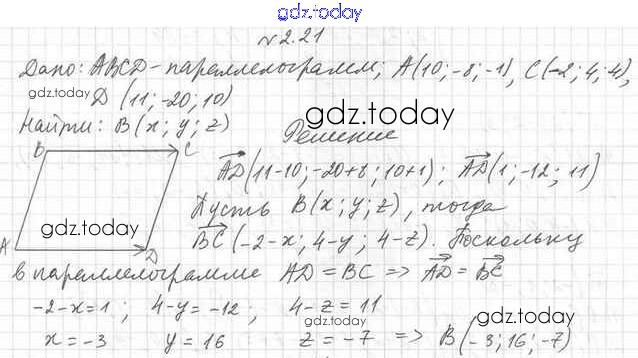 gdz.today
№2.21
Дано: ABCD - параллелограмм; A(10; -8; -1), C(-2; 4; 4),
gdz.today D (11; -20; 10)
Найти: B(x; y; z)
gdz.today
Решение
B C
AD(11-10; -20+8; 10+1); AD(1; -12; 11)
Пусть B(x; y; z), тогда
gdz.today
BC(-2-x; 4-y; 4-z). Поскольку
A D
в параллелограмме AD = BC => AD = BC
-2-x=1; 4-y=-12; 4-z=11
gdz.today gdz.today
x=-3 y=16 z=-7 => B(-3; 16; -7)